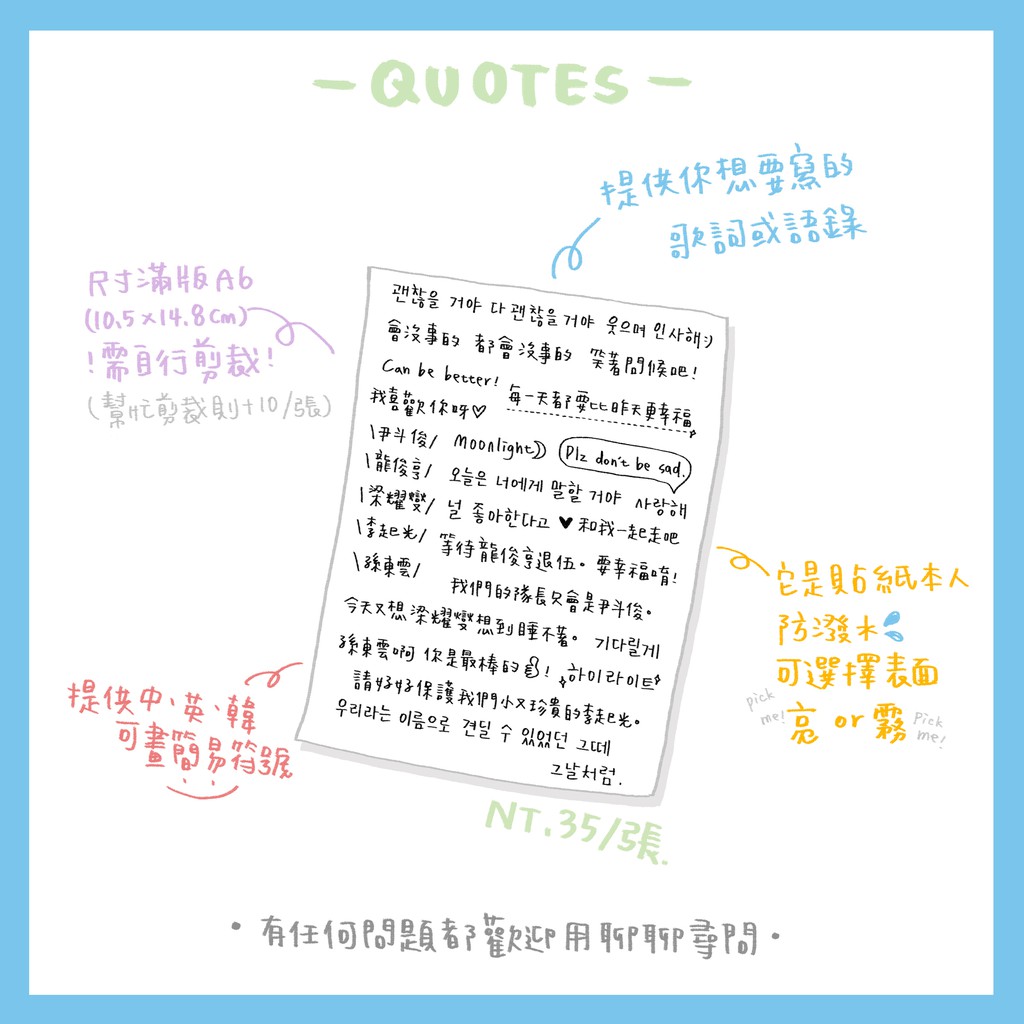 - QUOTES -
提供你想要寫的
歌詞或語錄
尺寸滿版A6
(10.5×14.8cm)
!需自行剪裁!
(幫忙剪裁則+10/張)
괜찮을 거야 다 괜찮을거야 웃으며 인사해:)
會沒事的 都會沒事的 笑著問候吧!
Can be better! 每一天都要比昨天更幸福
我喜歡你呀♡
\尹斗俊/ Moonlight》 Plz don't be sad.
\龍俊亨/ 오늘은 너에게 말할 거야 사랑해
\梁耀燮/ 널 좋아한다고 ♥ 和我一起走吧
\李起光/ 等待龍俊亨退伍。要幸福唷!
\孫東雲/ 我們的隊長只會是尹斗俊。
今天又想梁耀燮想到睡不著。 기다릴게
孫東雲啊 你是最棒的👍! 하이라이트
請好好保護我們小又珍貴的李起光。
우리라는 이름으로 견딜 수 있었던 그때
그날처럼.
它是貼紙本人
防潑水💦
可選擇表面
亮 or 霧
pick me!
Pick me!
提供中、英、韓
可畫簡易符號
NT.35/張.
·有任何問題都歡迎用聊聊尋問·